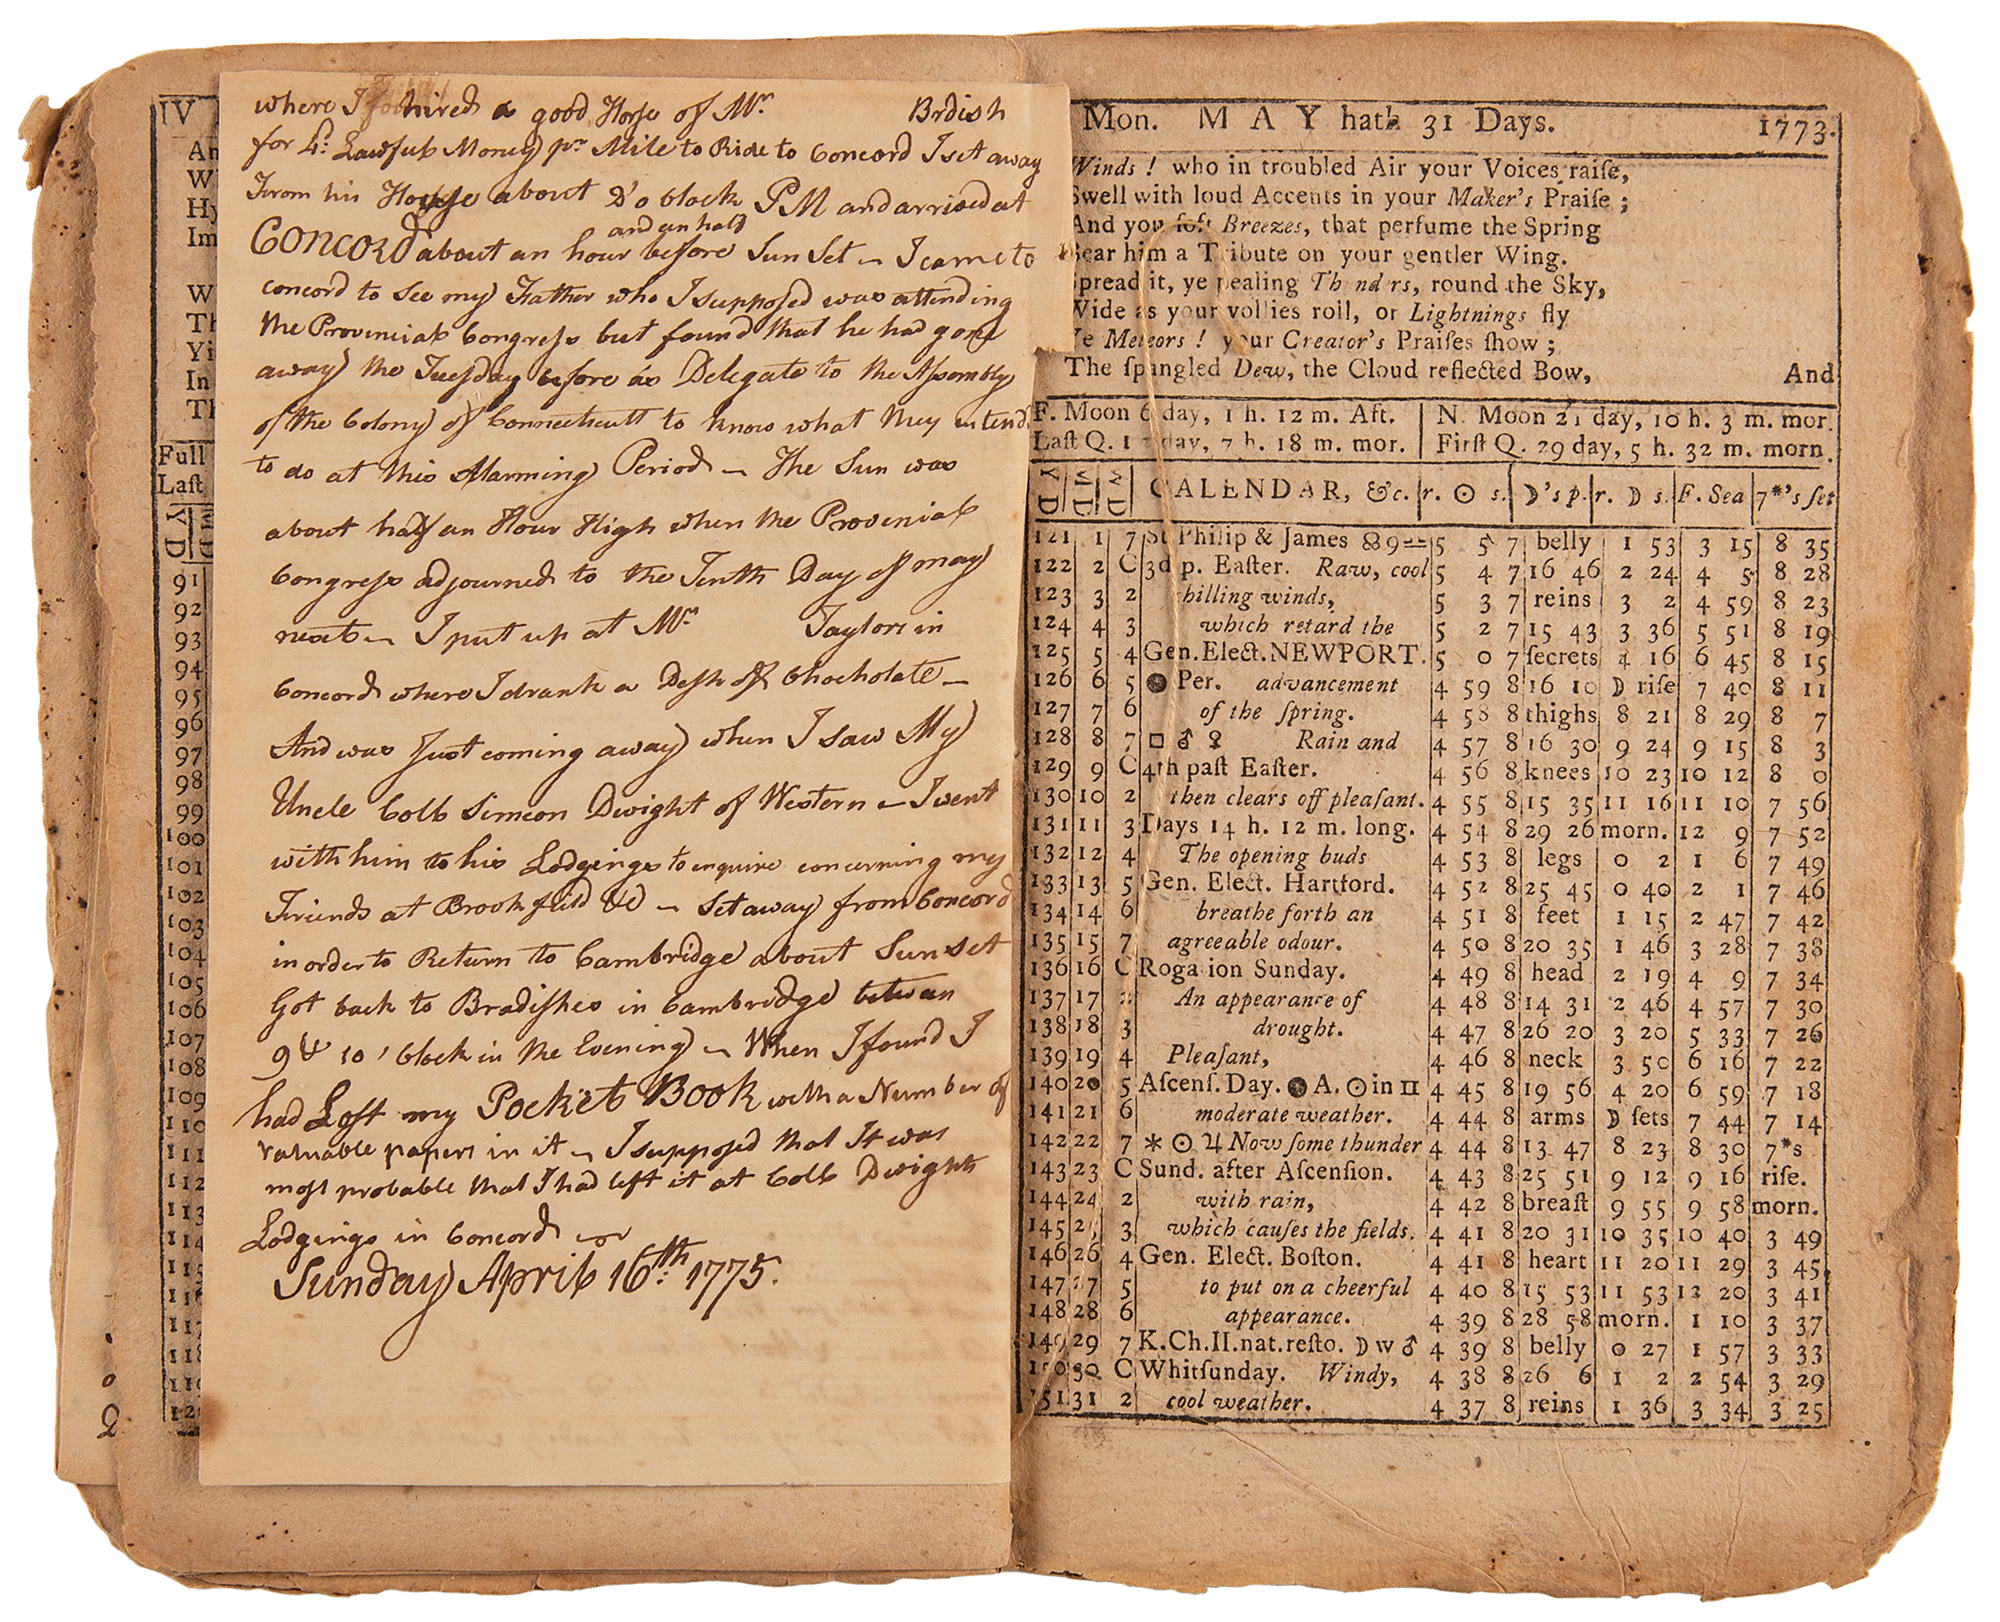 where I hired a good Horse of Mr. Brdish
for 4d. Lawfull Money pr Mile to Ride to Concord I set away
From his House about 2'o Clock PM and arrived at
and an half
CONCORD about an hour before Sun Set – I came to
concord to see my Father who I supposed was attending
the Provincial Congress but found that he had gone
away the Tuesday before as Delegate to the Assembly
of the Colony of Connecticutt to know what they intend
to do at this Alarming Period – The Sun was
about half an Hour High when the Provincial
Congress adjourned to the Tenth Day of may
next – I put up at Mr. Taylors in
Concord where I drank a Dish of Chocholate –
And was Just coming away when I saw My
Uncle Coll Simeon Dwight of Western – I went
with him to his Lodgings to enquire concerning my
Friends at Brookfield &c – set away from Concord
in order to Return to Cambridge about Sun set
Got back to Bradishes in Cambridge between
9 & 10 'Clock in the Evening – When I found I
had Lost my Pocket Book with a Number of
valuable papers in it – I supposed that It was
most probable that I had left it at Coll Dwight
Lodgings in Concord –
Sunday April 16th: 1775.
IV
An
W
Hy
Im
W
Th
Yi
In
Th
Full
Laſt
Y D
M D
91
92
93
94
95
96
97
98
99
100
101
102
103
104
105
106
107
108
109
110
111
112
113
114
115
117
118
Mon. MAY hath 31 Days. 1773.
Winds! who in troubled Air your Voices raiſe,
Swell with loud Accents in your Maker's Praiſe;
And you ſoft Breezes, that perfume the Spring
Bear him a Tribute on your gentler Wing.
Spread it, ye pealing Thnd rs, round the Sky,
Wide as your vollies roll, or Lightnings fly
Ye Meteors! your Creator's Praiſes ſhow;
The ſpangled Dew, the Cloud reflected Bow,
And
F. Moon 6 day, 1 h. 12 m. Aft. | N. Moon 21 day, 10 h. 3 m. mor.
Laſt Q. 1 day, 7 h. 18 m. mor. | Firſt Q. 29 day, 5 h. 32 m. morn.
Y D | M D | W D | CALENDAR, &c. | r. ☉ s. | ☽'s p. | r. ☽ s. | F. Sea | 7*'s ſet
121 1 7 St Philip & James ☊9♒ 5 5 7 belly 1 53 3 15 8 35
122 2 C 3d p. Eaſter. Raw, cool 5 4 7 16 46 2 24 4 5 8 28
123 3 2 chilling winds, 5 3 7 reins 3 2 4 59 8 23
124 4 3 which retard the 5 2 7 15 43 3 36 5 51 8 19
125 5 4 Gen. Elect. NEWPORT. 5 0 7 ſecrets 4 16 6 45 8 15
126 6 5 ● Per. advancement 4 59 8 16 10 ☽ riſe 7 40 8 11
127 7 6 of the ſpring. 4 58 8 thighs 8 21 8 29 8 7
128 8 7 □ ♂ ♀ Rain and 4 57 8 16 30 9 24 9 15 8 3
129 9 C 4th paſt Eaſter. 4 56 8 knees 10 23 10 12 8 0
130 10 2 then clears off pleaſant. 4 55 8 15 35 11 16 11 10 7 56
131 11 3 Days 14 h. 12 m. long. 4 54 8 29 26 morn. 12 9 7 52
132 12 4 The opening buds 4 53 8 legs 0 2 1 6 7 49
133 13 5 Gen. Elect. Hartford. 4 52 8 25 45 0 40 2 1 7 46
134 14 6 breathe forth an 4 51 8 feet 1 15 2 47 7 42
135 15 7 agreeable odour. 4 50 8 20 35 1 46 3 28 7 38
136 16 C Roga ion Sunday. 4 49 8 head 2 19 4 9 7 34
137 17 2 An appearance of 4 48 8 14 31 2 46 4 57 7 30
138 18 3 drought. 4 47 8 26 20 3 20 5 33 7 26
139 19 4 Pleaſant, 4 46 8 neck 3 50 6 16 7 22
140 20 5 Aſcenſ. Day. ● A. ☉ in ♊ 4 45 8 19 56 4 20 6 59 7 18
141 21 6 moderate weather. 4 44 8 arms ☽ ſets 7 44 7 14
142 22 7 ⚹ ☉ ♃ Now ſome thunder 4 44 8 13 47 8 23 8 30 7*s
143 23 C Sund. after Aſcenſion. 4 43 8 25 51 9 12 9 16 riſe.
144 24 2 with rain, 4 42 8 breaſt 9 55 9 58 morn.
145 2 3 which cauſes the fields, 4 41 8 20 31 10 35 10 40 3 49
146 26 4 Gen. Elect. Boſton. 4 41 8 heart 11 20 11 29 3 45
147 27 5 to put on a cheerful 4 40 8 15 53 11 53 12 20 3 41
148 28 6 appearance. 4 39 8 28 58 morn. 1 10 3 37
149 29 7 K.Ch.II.nat.reſto. ☽ w ♂ 4 39 8 belly 0 27 1 57 3 33
150 30 C Whitſunday. Windy, 4 38 8 26 6 1 2 2 54 3 29
151 31 2 cool weather. 4 37 8 reins 1 36 3 34 3 25